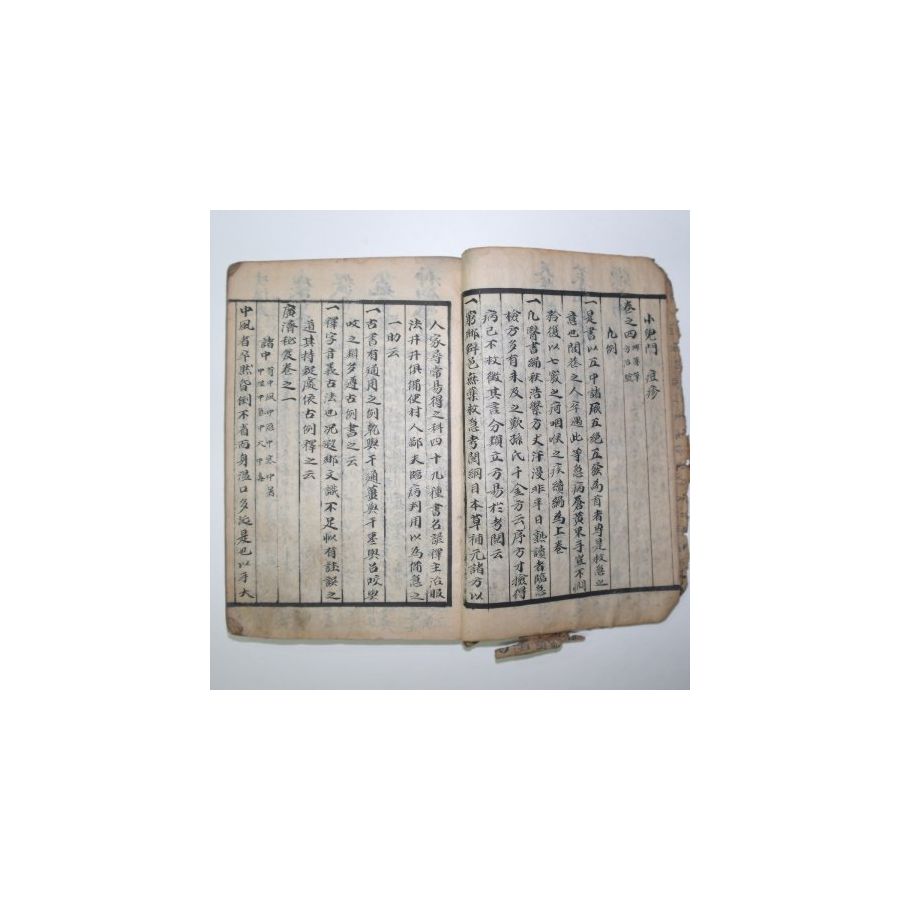 小兒門 痘疹
卷之四
凡例
一是書以五中諸厥五絕五發為首者專是救急之
意也開卷之人卒遇此等急病蒼黃果手豈不悶
於後以七竅之疴咽喉之疾續編為上卷
一凡醫書編秩浩繁方文汗漫非平日熟讀者臨急
檢方多有未及之歎孫氏千金方云序方才撿得
病已不救倣其言分類立方易於考閱云
一窮鄉僻邑無藥救急考閱綱目本草補元諸方以
人家尋常易得之科四十九種書名錄釋主治服
法井井俱備便村人鄙夫臨病判用以為備急之
一助云
一古書有通用之例乾與干通薑與干墨與旨咬與
咬之類多遵古例書之云
一釋字音義古法也況遐鄉文識不足似有註誤之
道其持疑處依古例釋之云
廣濟秘笈卷之一
諸中
中風者卒然昏倒不省而身溫口多涎是也以手大